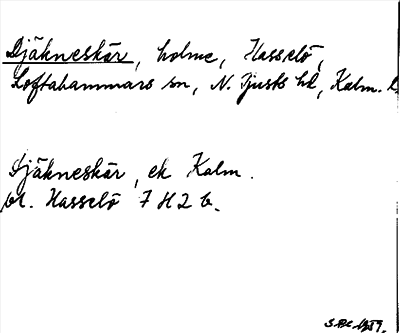 Djäkneskär, holme, Hasselö,
Loftahammars sn, N. Tjusts hd, Kalm. l.
Djäkneskär, ek Kalm.
bl. Hasselö 7 H 2 b.